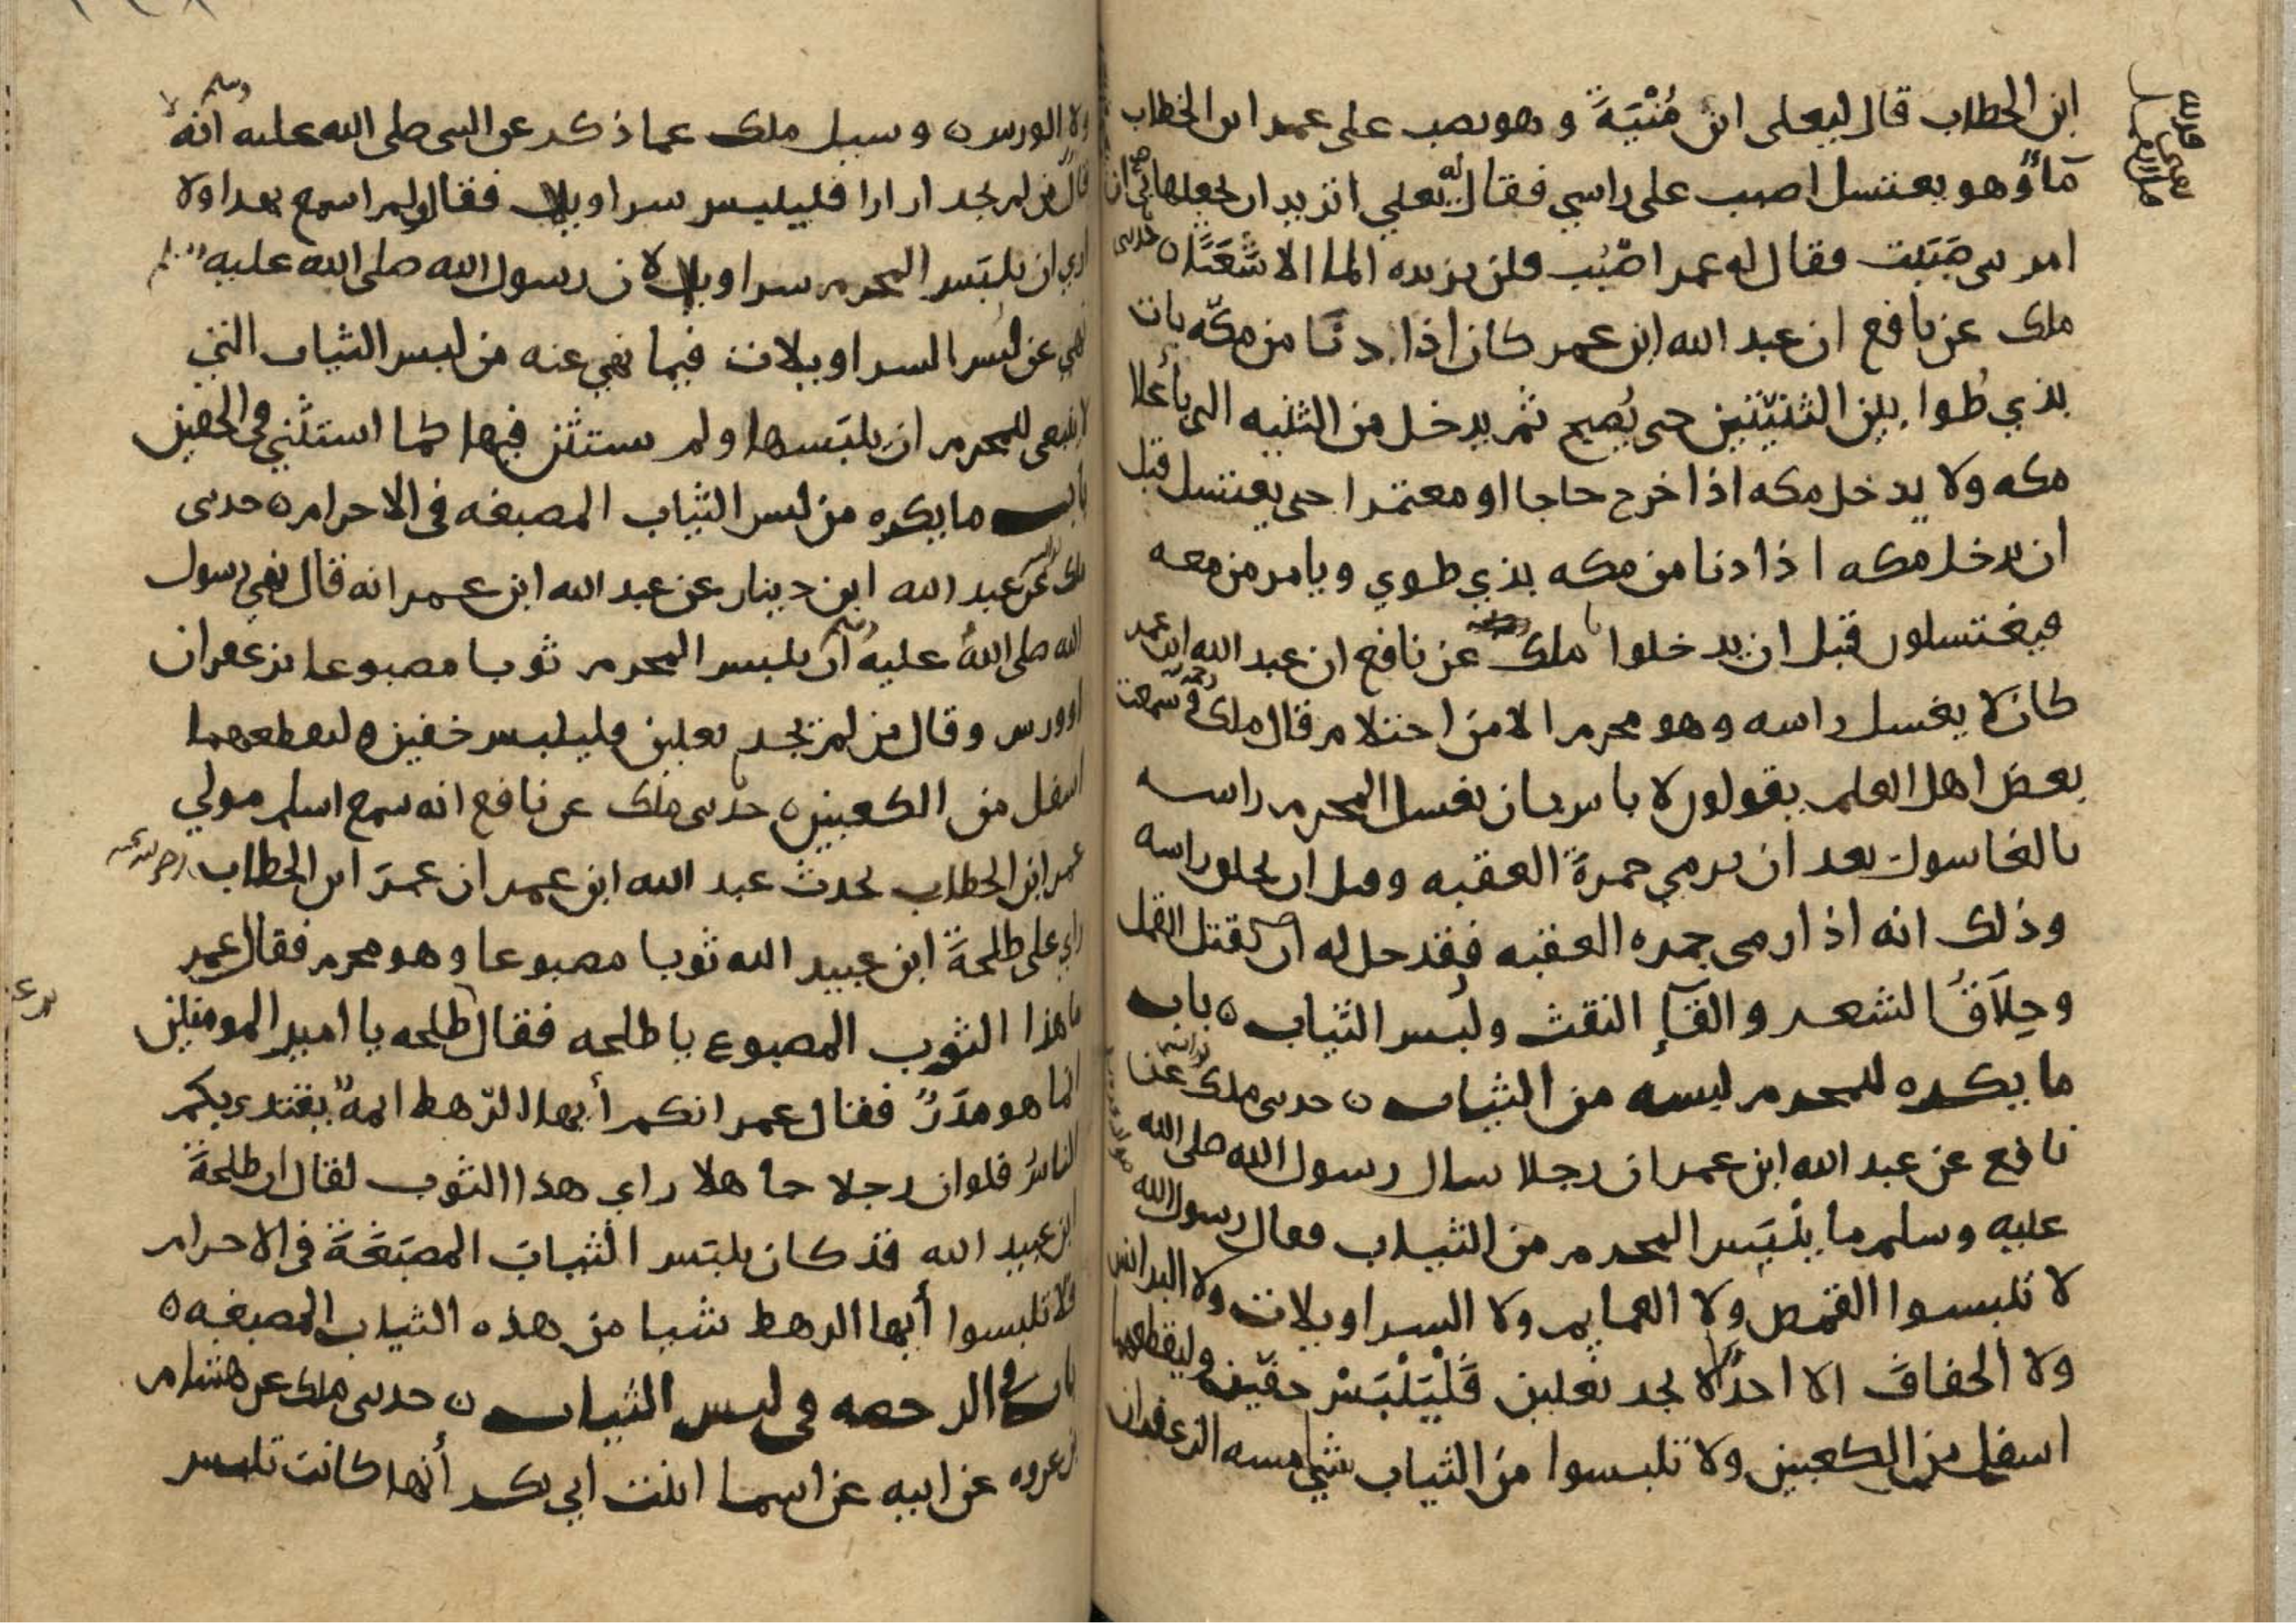 ابن الخطاب قال ليعلى ابن مُنْيَةَ وهو يصب على عمر ابن الخطاب
مآءً وهو يغتسل اصبب على راسي فقال له يعلي اتريد ان تجعلها بي ان
امرتني صَبَبت فقال له عمر اصْبُب فلن يزيده الما الا شَعَثًا ٥ حدثني
ملك عن نافع ان عبد الله ابن عمر كان اذا دنا من مكّة بات
بذي طُوا بين الثنيّتين حتى يُصبح ثم يدخل من الثنيه التي بأعلا
مكه ولا يدخل مكه اذا خرج حاجا او معتمرا حتى يغتسل قبل
ان يدخل مكه اذا دنا من مكه بذي طوي ويامر من معه
فيغتسلون قبل ان يدخلوا ملك عن نافع ان عبد الله ابن عمر
كان لا يغسل راسه وهو محرم الا من احتلام قال ملك سمعت
بعض اهل العلم يقولون لا باس بان يغسل المحرم راسه
بالغاسول بعد ان يرمي جمرةَ العقبه وقبل ان يحلق راسه
وذلك انه اذا رمى جمره العقبه فقد حل له ان يقتل القمل
وحِلَاقُ الشعر والقآءِ التفث ولُبس الثياب ٥ باب
ما يكره للمحرم لبسه من الثياب ٥ حدثني ملك عن
نافع عن عبد الله ابن عمر ان رجلا سال رسول الله صلى الله
عليه وسلم ما يلْبَس المحرم من الثياب فقال رسول الله
لا تلبسوا القمص ولا العمايم ولا السراويلات ولا البرانس
ولا الخفافَ الا احدًا لا يجد نعلين فَلْيَلْبَسْ خفّين وليقطعهما
اسفل من الكعبين ولا تلبسوا من الثياب شيا مسه الزعفران
ولا الورس ٥ وسيل ملك عما ذكر عن النبي صلى الله عليه وسلم انه
قال من لم يجد ازارا فليلبس سراويل فقال لم اسمع بهدا ولا
اري ان يلبَس المحرم سراويل لان رسول الله صلى الله عليه وسلم
نهي عن لُبس السراويلات فيما نهي عنه من لبس الثياب التي
لا ينبغي للمحرم ان يلبَسها ولم يستثن فيها كما استثني في الخفين
باب ما يكره من لبس الثياب المصبغه في الاحرام ٥ حدثني
ملك عن عبد الله ابن دينار عن عبد الله ابن عمر انه قال نهي رسول
الله صلى الله عليه وسلم ان يلبس المحرم ثوبا مصبوغا بزعفران
او ورس وقال من لم يجد نعلين فليلبس خفين وليقطعهما
اسفل من الكعبين ٥ حدثني ملك عن نافع انه سمع اسلم مولي
عمر ابن الخطاب يحدث عبد الله ابن عمر ان عمرَ ابن الخطاب رضي الله عنه
راي على طلحةَ ابن عبيد الله ثوبا مصبوغا وهو محرم فقال عمر
ما هذا الثوب المصبوغ يا طلحه فقال طلحه يا امير المومنين
انما هو مَدَرٌ فقال عمر انكم أيها الرّهط ايمةٌ يقتدي بكم
الناسُ فلو ان رجلا جاهلا راي هذا الثوب لقال ان طلحةَ
ابن عبيد الله قد كان يلبَس الثيابَ المصبَغَةَ في الاحرام
فلا تلبسوا أيها الرهط شيا من هذه الثياب المصبغه ٥
باب في الرخصه في لبس الثياب ٥ حدثني ملك عن هشام
بن عروه عن ابيه عن اسما ابنت ابي بكر أنها كانت تلبس